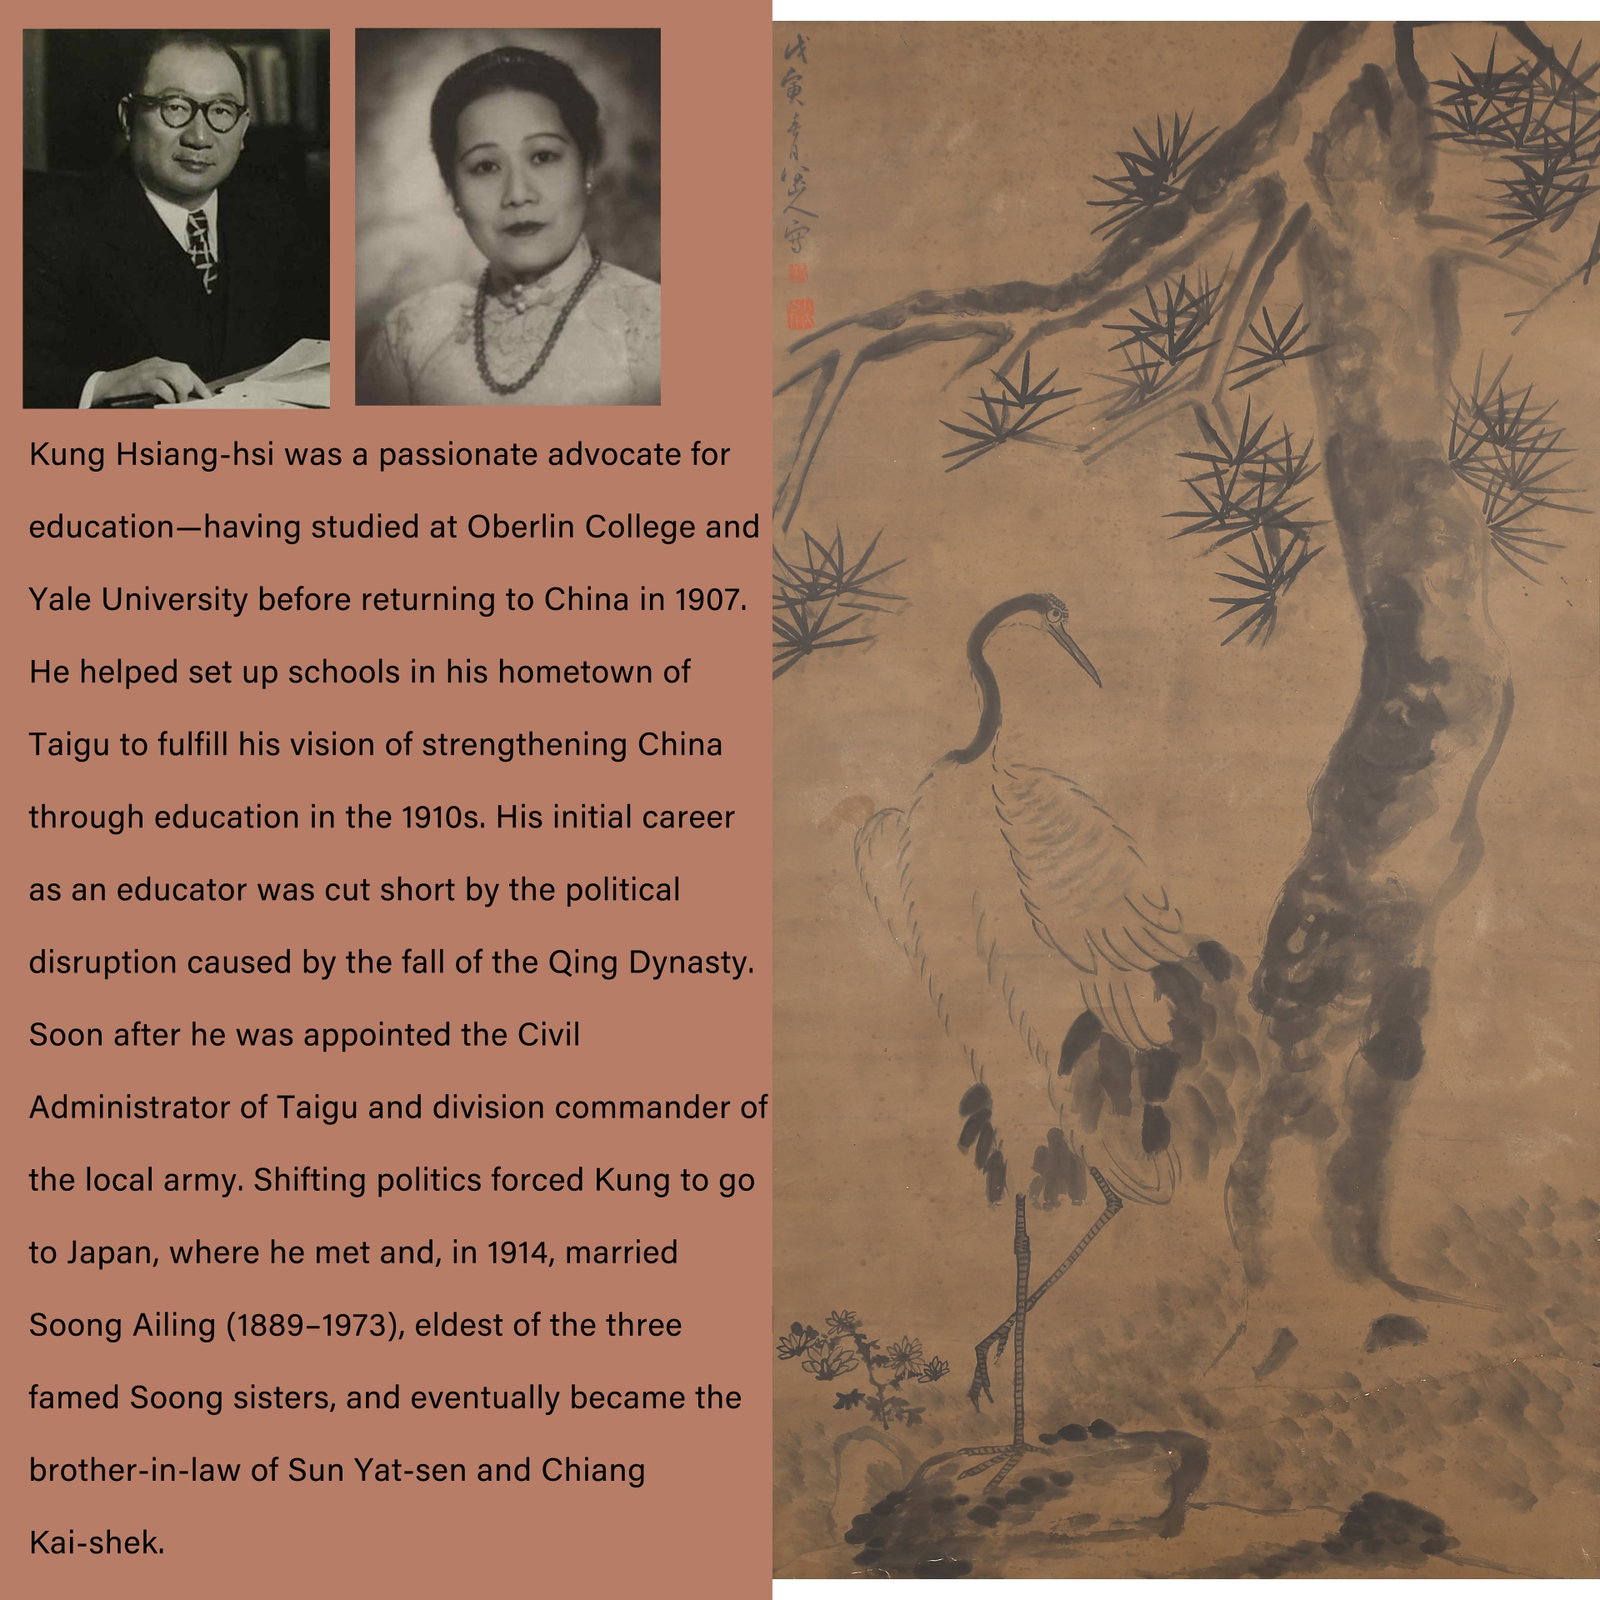 Kung Hsiang-hsi was a passionate advocate for
education—having studied at Oberlin College and
Yale University before returning to China in 1907.
He helped set up schools in his hometown of
Taigu to fulfill his vision of strengthening China
through education in the 1910s. His initial career
as an educator was cut short by the political
disruption caused by the fall of the Qing Dynasty.
Soon after he was appointed the Civil
Administrator of Taigu and division commander of
the local army. Shifting politics forced Kung to go
to Japan, where he met and, in 1914, married
Soong Ailing (1889–1973), eldest of the three
famed Soong sisters, and eventually became the
brother-in-law of Sun Yat-sen and Chiang
Kai-shek.
戊寅春月八大山人寫